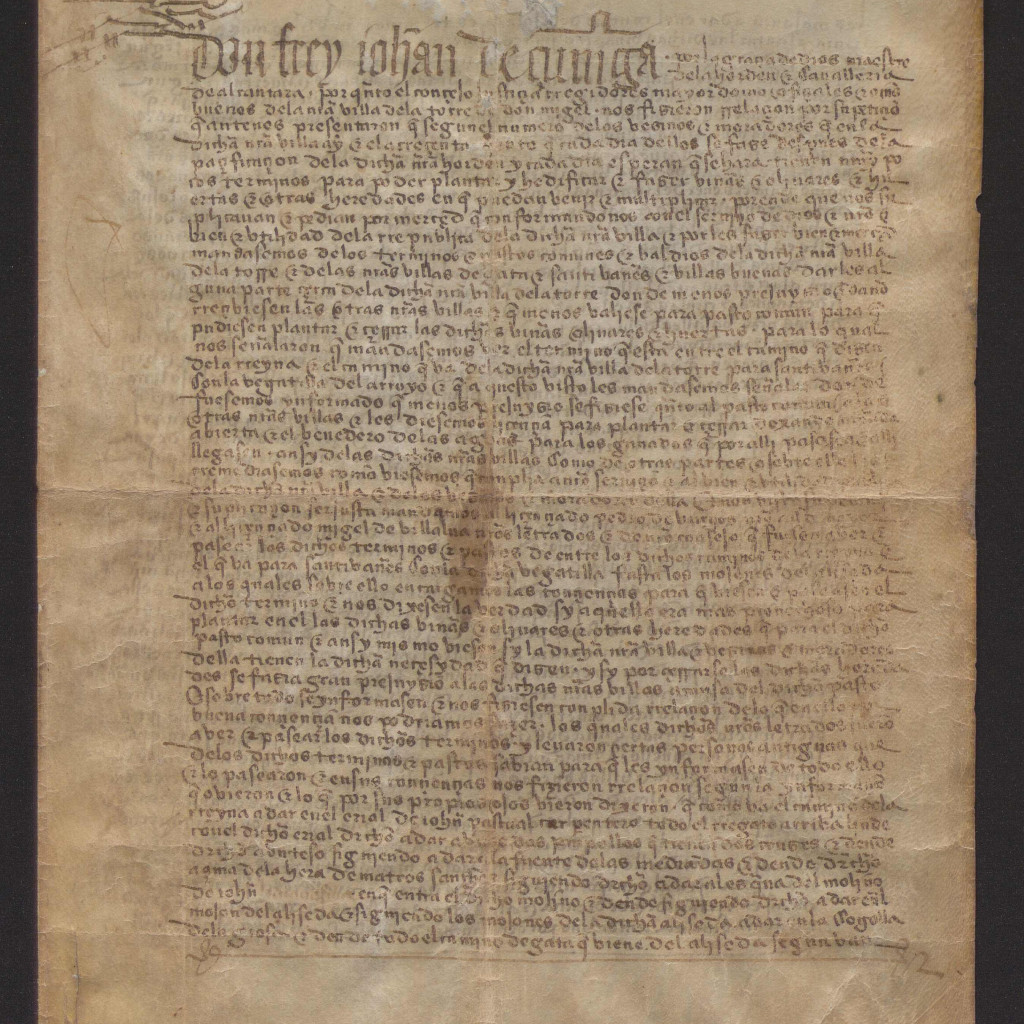 Don frey iohan de cuniga por la gracia de dios maestre
de la horden & Cavalleria
de alcantara . por quanto el conçejo justiçia rregidores mayordomo ofiçiales & omes
buenos de la nra villa de la torre de don migel . nos fizieron rrelaçion por su petiçion
que ante nos presentaron que segun el numero delos vezinos & moradores que en la
dicha nra villa ay & el acreçento que cada dia dellos se faze despues dela
paçificaçion dela dicha nra horden y cada dia esperan que se hara tienen muy po
cos terminos para poder plantar y hedificar & fazer viñas & olivares & hu
ertas & otras heredades en que puedan venir & multiplicar . porende que nos su
plicavan & pedian por merçed que conformandonos con el serviçio de dios & nro &
bien & utilidad dela rrepublica dela dicha nra villa & por les fazer bien & merçed
mandasemos delos terminos & pastos comunes & baldios dela dicha nra villa
dela torre & delas nras villas de gata & santivanes & villas buenas darles al
guna parte çerca dela dicha nra villa dela torre donde menos prejuyzio & daño
rreçibiesen las otras nras villas & que menos valiese para pasto comun para que
pudiesen plantar & çerrar las dichas viñas olivares & huertas . para lo qual
nos señalaron que mandasemos ver el termino que esta entre el camino que dizen
dela rreyna & el camino que va dela dicha nra villa dela torre para santivanes
con la vegatilla del arroyo & que aquesto visto les mandasemos señalar donde
fuesemos ynformado que menos prejuyzio se fiziese quanto al pasto comun
otras nras villas & les diesemos liçençia para plantar & çerrar dexando
abierta & el bevedero delas aguas para los ganados que por alli pasasen
llegasen . ansy delas dichas nras villas como de otras partes & sobre ello
rremediasemos como viesemos que cumplia a nro serviçio & al bien & utilidad
dela dicha nra villa & delos vezinos & moradores della &
& suplicaçion ser justa mandamos al liçençiado pedro de
& al liçençiado migel de villalva nros letrados & de nro consejo que fuesen a ver &
pasear los dichos terminos & pastos de entre los dichos caminos dela rreyna &
el que va para santivanes con la dicha vegatilla fasta los mojones del
alos quales sobre ello encargamos las conçiençias para que viesen & paseasen el
dicho termino & nos dixesen la verdad sy aquello era mas provechoso para
plantar en ellas dichas viñas & olivares & otras heredades que para el dicho
pasto comun & ansy mismo viesen sy la dicha nra villa & vezinos & moradores
della tienen la dicha neçesydad que dizen . y sy por çerrarse las dichas hereda
des se faria gran prejuyzio alas dichas nras villas a causa del dicho pasto
& sobre todo se ynformasen & nos fiziesen conplida rrelaçion delo que en ello con
buena conçiençia nos podriamos fazer . los quales dichos nros letrados fueron
a ver & pasear los dichos terminos y levaron çiertas personas antiguas que
delos dichos terminos & pastos sabian para que les ynformasen de todo ello
& lo pasearon & en sus conçiençias nos fizieron rrelaçion segun la ynformaçion
que ovieron & lo que por sus propios ojos vieron dixeron . que como va el camino dela
rreyna a dar en el erial de iohan pascual carpentero todo el rregato arriba linde
con el dicho erial derecho a dar a que tienen dos cruzes & dende
derecho a un teso siguiendo a dar a la fuente delas mediadas & dende derecho
a çima dela hera de mateos sanches siguiendo derecho a dar ales que va del molino
de iohan en que entra el dicho molino & dende siguiendo derecho a dar en el
mojon del aliseda & siguiendo los mojones dela dicha aliseda a dar en la cogolla
& dende todo el camino de gata que viene del aliseda segun va